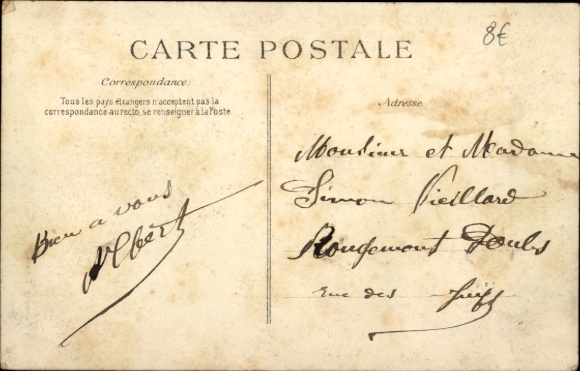 8€
CARTE POSTALE
Correspondance:
Tous les pays étrangers n'acceptent pas la
correspondance au recto, se renseigner à la Poste
Bien a vous
Albert
Adresse
Monsieur et Madame
Simon Vieillard
Rougemont Doubs
rue des Juifs